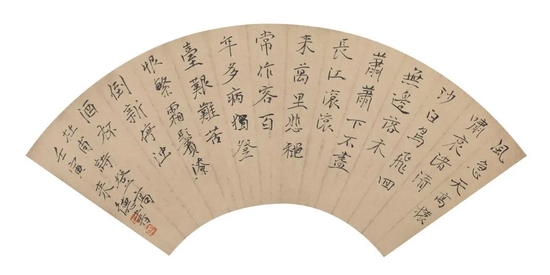 風急天高猿
嘯哀渚清
沙白鳥飛回
無邊落木
蕭蕭下不盡
長江滾滾
來萬里悲穐
常作客百
年多病獨登
臺艱難苦
恨繁霜鬢潦
倒新停濁
酒杯
杜甫詩登高
壬寅冬德